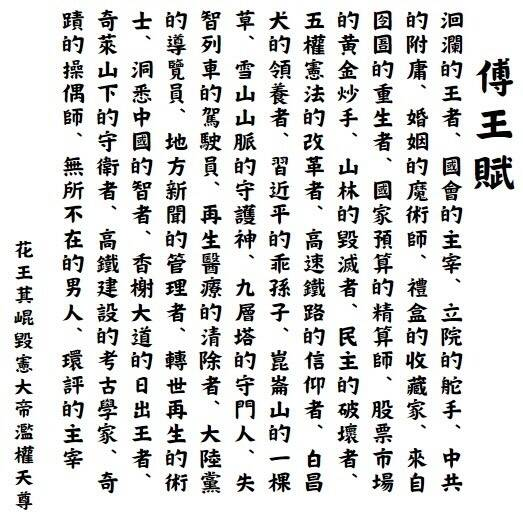 傅王賦
洄瀾的王者、國會的主宰、立院的舵手、中共
的附庸、婚姻的魔術師、禮盒的收藏家、來自
囹圄的重生者、國家預算的精算師、股票市場
的黃金炒手、山林的毀滅者、民主的破壞者、
五權憲法的改革者、高速鐵路的信仰者、白昌
犬的領養者、習近平的乖孫子、崑崙山的一棵
草、雪山山脈的守護神、九層塔的守門人、失
智列車的駕駛員、再生醫療的清除者、大陸黨
的導覽員、地方新聞的管理者、轉世再生的術
士、洞悉中國的智者、香榭大道的日出王者、
奇萊山下的守衛者、高鐵建設的考古學家、奇
蹟的操偶師、無所不在的男人、環評的主宰
花王萁崐毀憲大帝濫權天尊